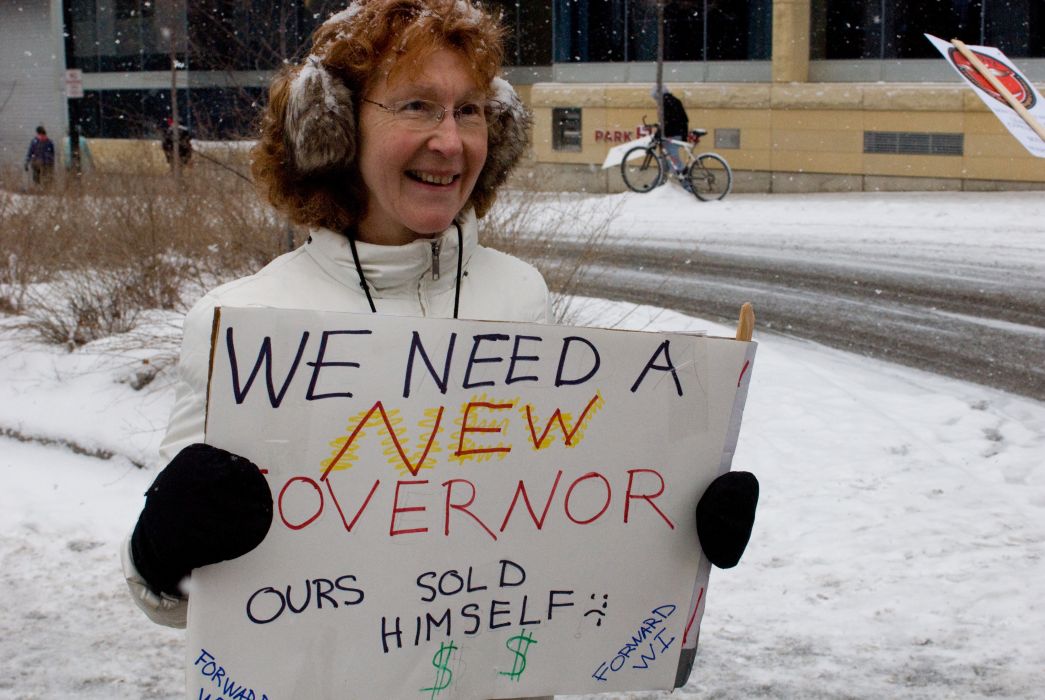 WE NEED A
NEW
GOVERNOR
OURS SOLD
HIMSELF
$ $
FORWARD
WI
FORWARD
PARK